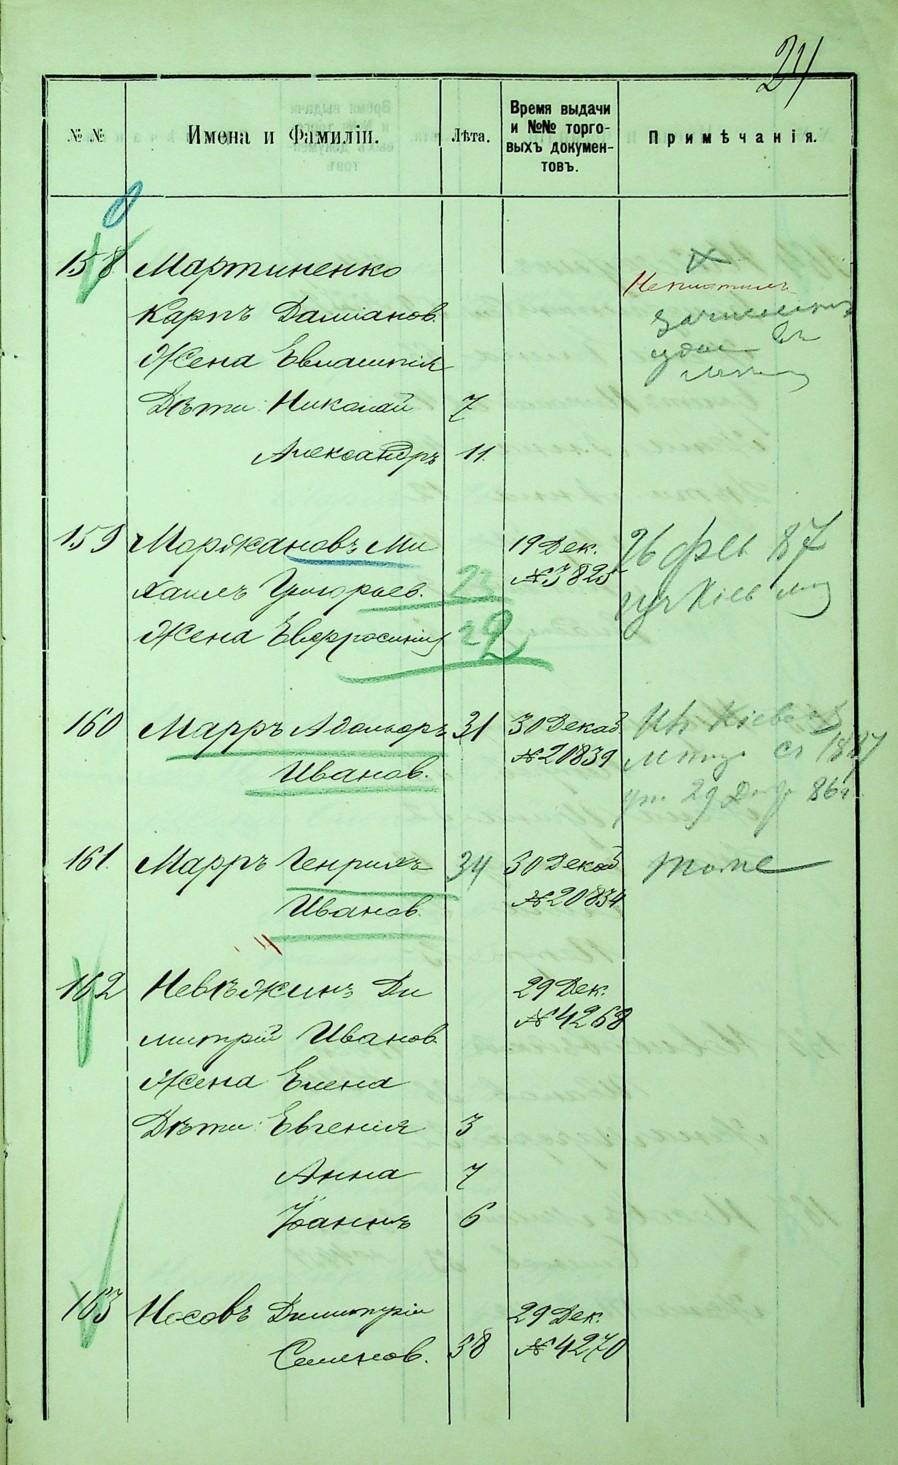 24
№ №
Имена и Фамиліи.
Лѣта.
Время выдачи
и №№ торго-
выхъ докумен-
товъ.
Примѣчанія.
158 Мартиненко
Карпъ Даміанов.
Жена Евлампія
Дѣти: Николай 7
Александръ 11.
159 Ми 19 Дек.
хаилъ Григорьев. 22 № 3825
Жена Евфросинія 22
26 фев 87
160 Марръ Адольфъ 31 30 Декаб
Иванов. № 20839
29 86
161. Марръ Генрихъ 34 30 Декаб тоже
Иванов. № 20834
162 Невѣжинъ Ди 29 Дек.
митрій Иванов № 4268
Жена Елена
Дѣти: Евгенія 3
Анна 7
Іоаннъ 6
163 Носовъ Димитрій 29 Дек.
Семенов. 38 № 4270